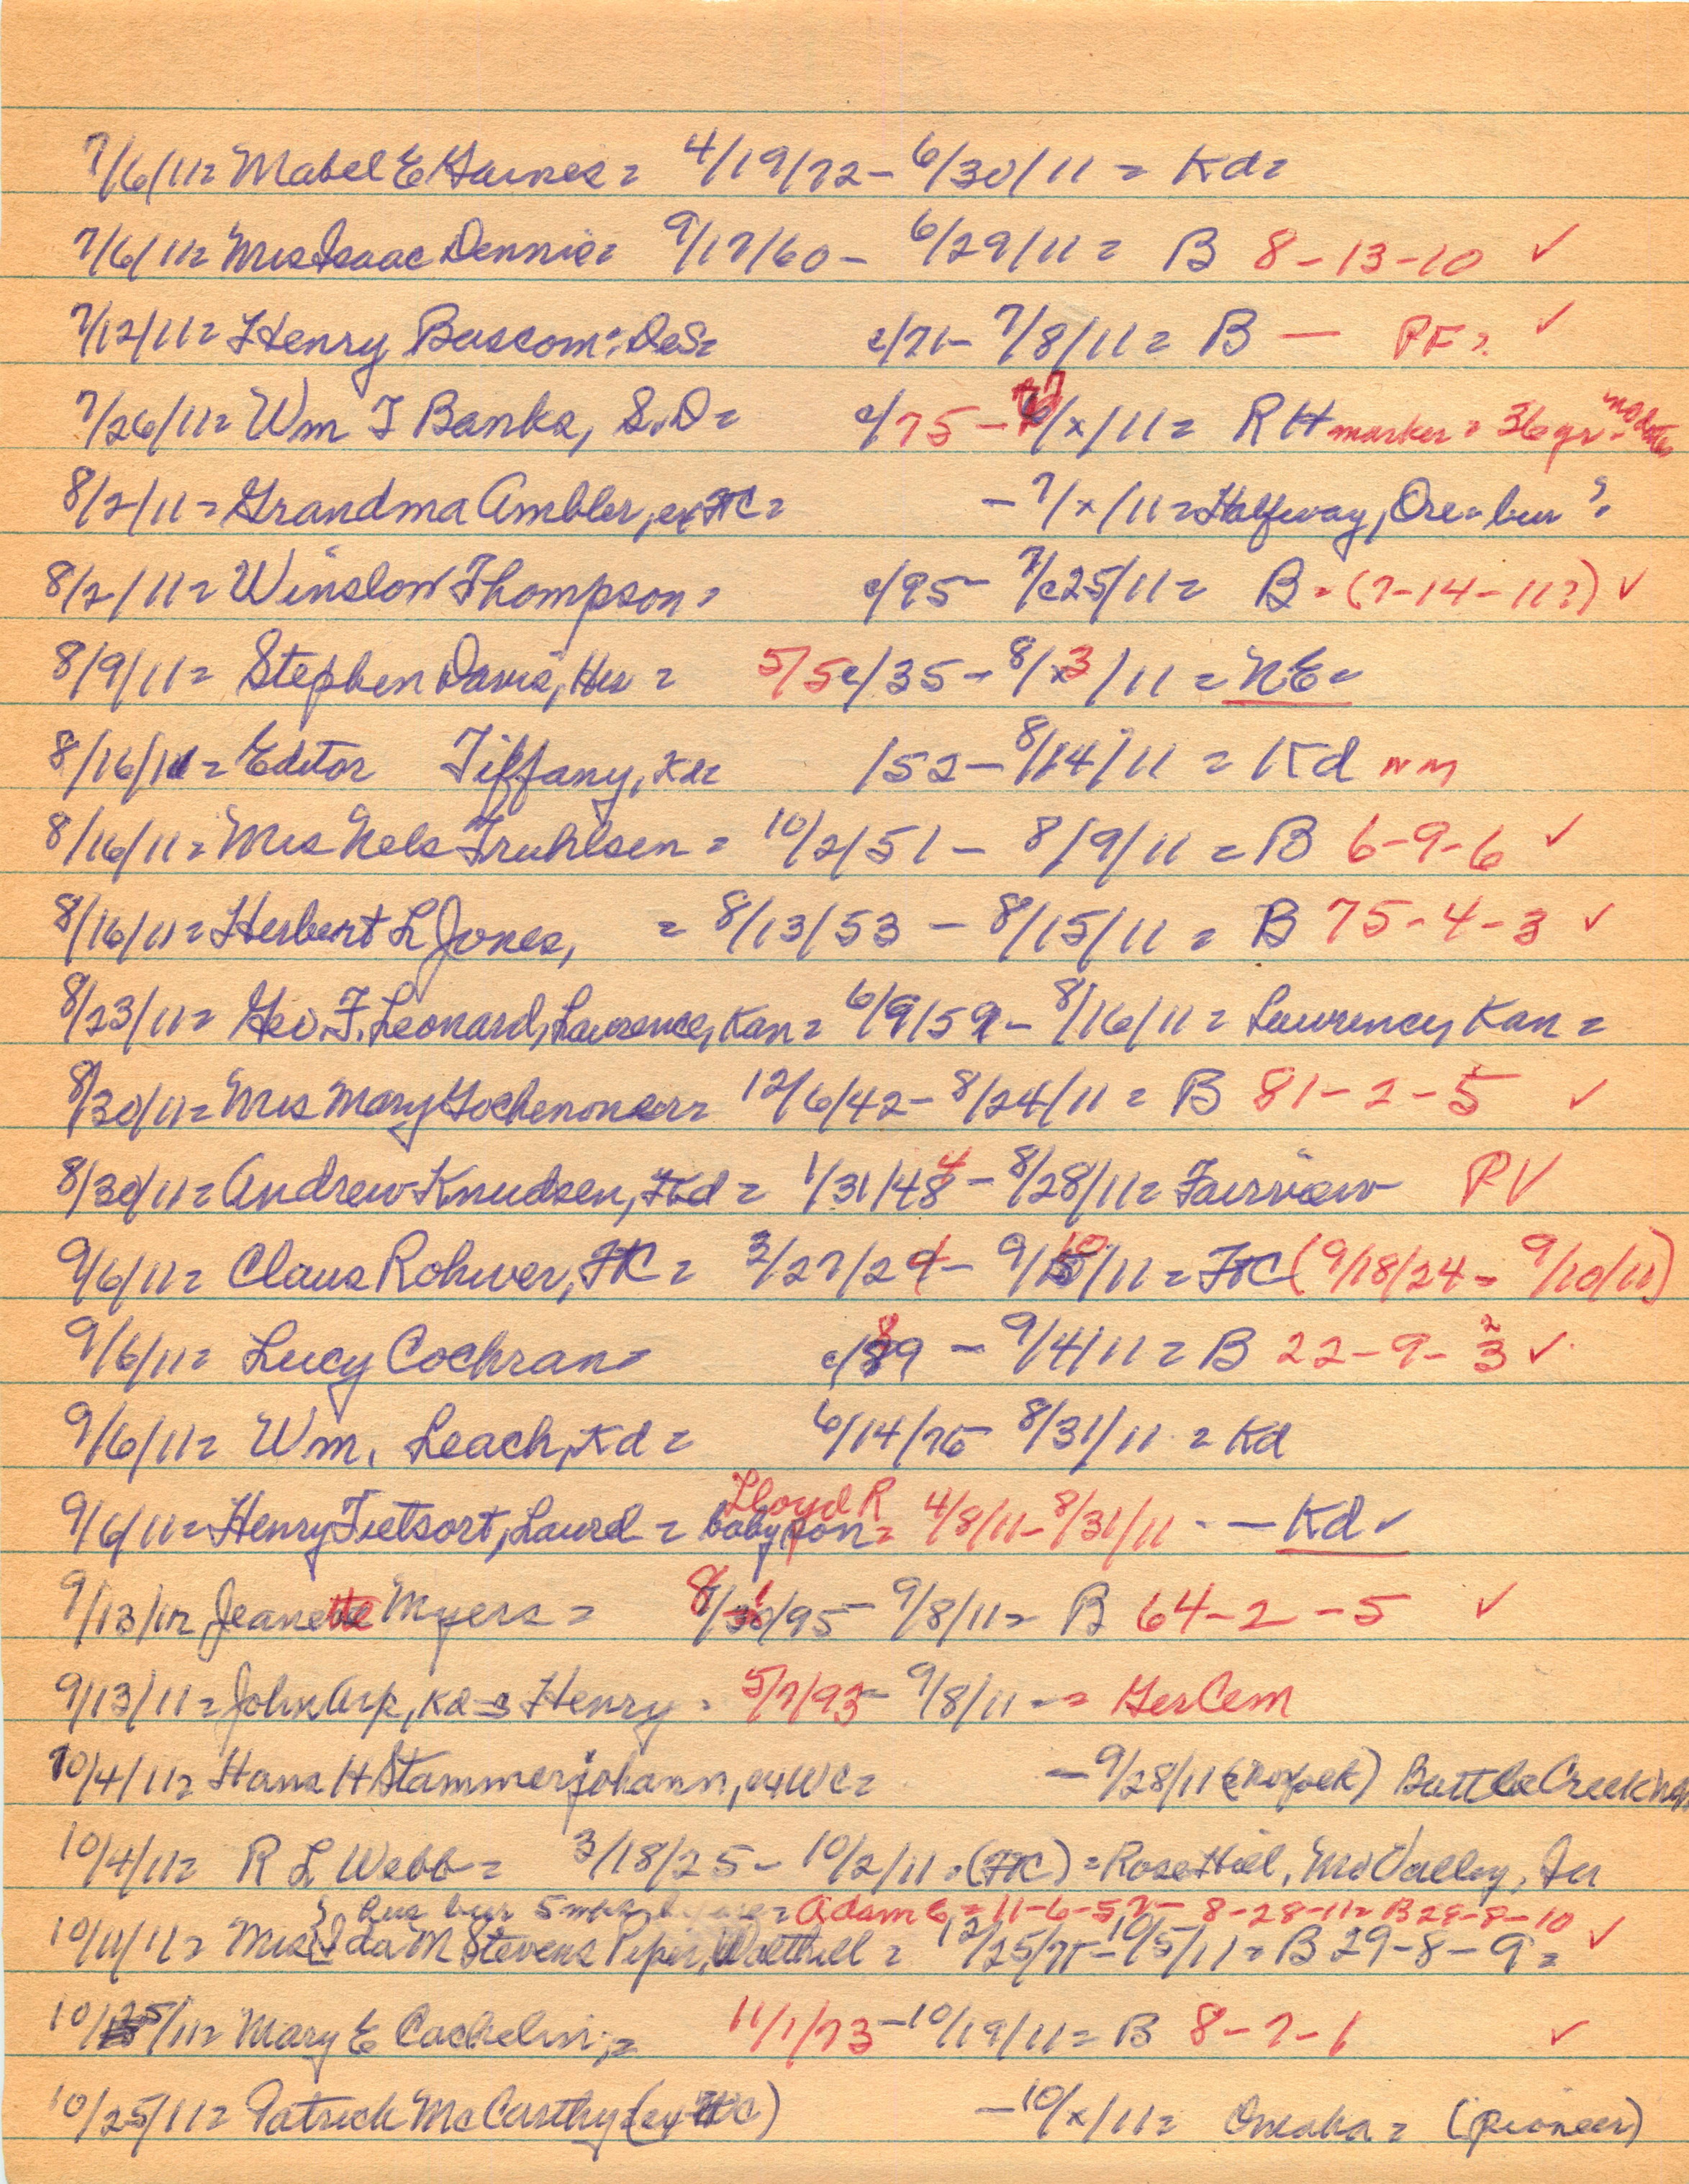 7/6/11= Mabel E Haines= 4/19/72- 6/30/11 = Kd=
7/6/11= Mrs Isaac Dennis= 9/17/60- 6/29/11= B 8-13-10 ✓
7/12/11= Henry Bascom: DeS= c/71- 7/8/11= B — PF?. ✓
7/26/11= Wm T Banks, S.D= c/75- 7/x/11= RH marker= 36yr- no dates
8/2/11= Grandma Ambler, ex HC= - 7/x/11= Halfway, Ore= bur ?
8/2/11= Winslow Thompson= c/95- 7/c25/11= B=(7-14-11?) ✓
8/9/11= Stephen Davis, Her = 5/5c/35- 8/x3/11= NE=
8/16/11= Editor Tiffany, Kd= /52- 8/14/11 = Kd nm
8/16/11= Mrs Nels Truhlsen= 10/2/51- 8/9/11= B 6-9-6 ✓
8/16/11= Herbert L Jones, = 8/13/53 - 8/15/11= B 75-4-3 ✓
8/23/11= Geo. F. Leonard, Lawrence, Kan= 6/9/59- 8/16/11= Lawrence, Kan=
8/30/11= Mrs Mary Gochenouer= 12/6/42- 8/24/11= B 81-2-5 ✓
8/30/11= Andrew Knudsen, Kd= 1/31/48 4 - 8/28/11= Fairview RV
9/6/11= Claus Rohwer, FtC= 3/27/24- 9/10/11= FtC (9/18/24- 9/10/11)
9/6/11= Lucy Cochran= c/89 8 - 9/4/11= B 22-9-3 2 ✓
9/6/11= Wm. Leach, Kd= 6/14/75- 8/31/11= Kd
Lloyd R
9/6/11= Henry Tietsort, Laurel= baby son= 4/8/11- 8/31/11 - — Kd ✓
9/13/11= Jeanette Myers= 8/31/95- 9/8/11= B 64-2-5 ✓
9/13/11= John Arp, Kd-s Henry= 5/7/93- 9/8/11-= Ger Cem
10/4/11= Hans H Stammerjohann, ex WC= - 9/28/11 (Norfolk) Battle Creek Neb
10/4/11= R L Webb= 3/18/25- 10/2/11=(FtC)= Rose Hill, Mo Valley, Ia
bur Adam G= 11-6-57- 8-28-11= B 29-8-10
10/11/11= Mrs Ida M Stevens Piper, Walthill= 12/25/75- 10/5/11= B 29-8-9= ✓
10/25/11= Mary E Cachelin,= 11/1/73- 10/19/11= B 8-7-1 ✓
10/25/11= Patrick McCarthy (ex FtC) - 10/x/11= Omaha= (pioneer)